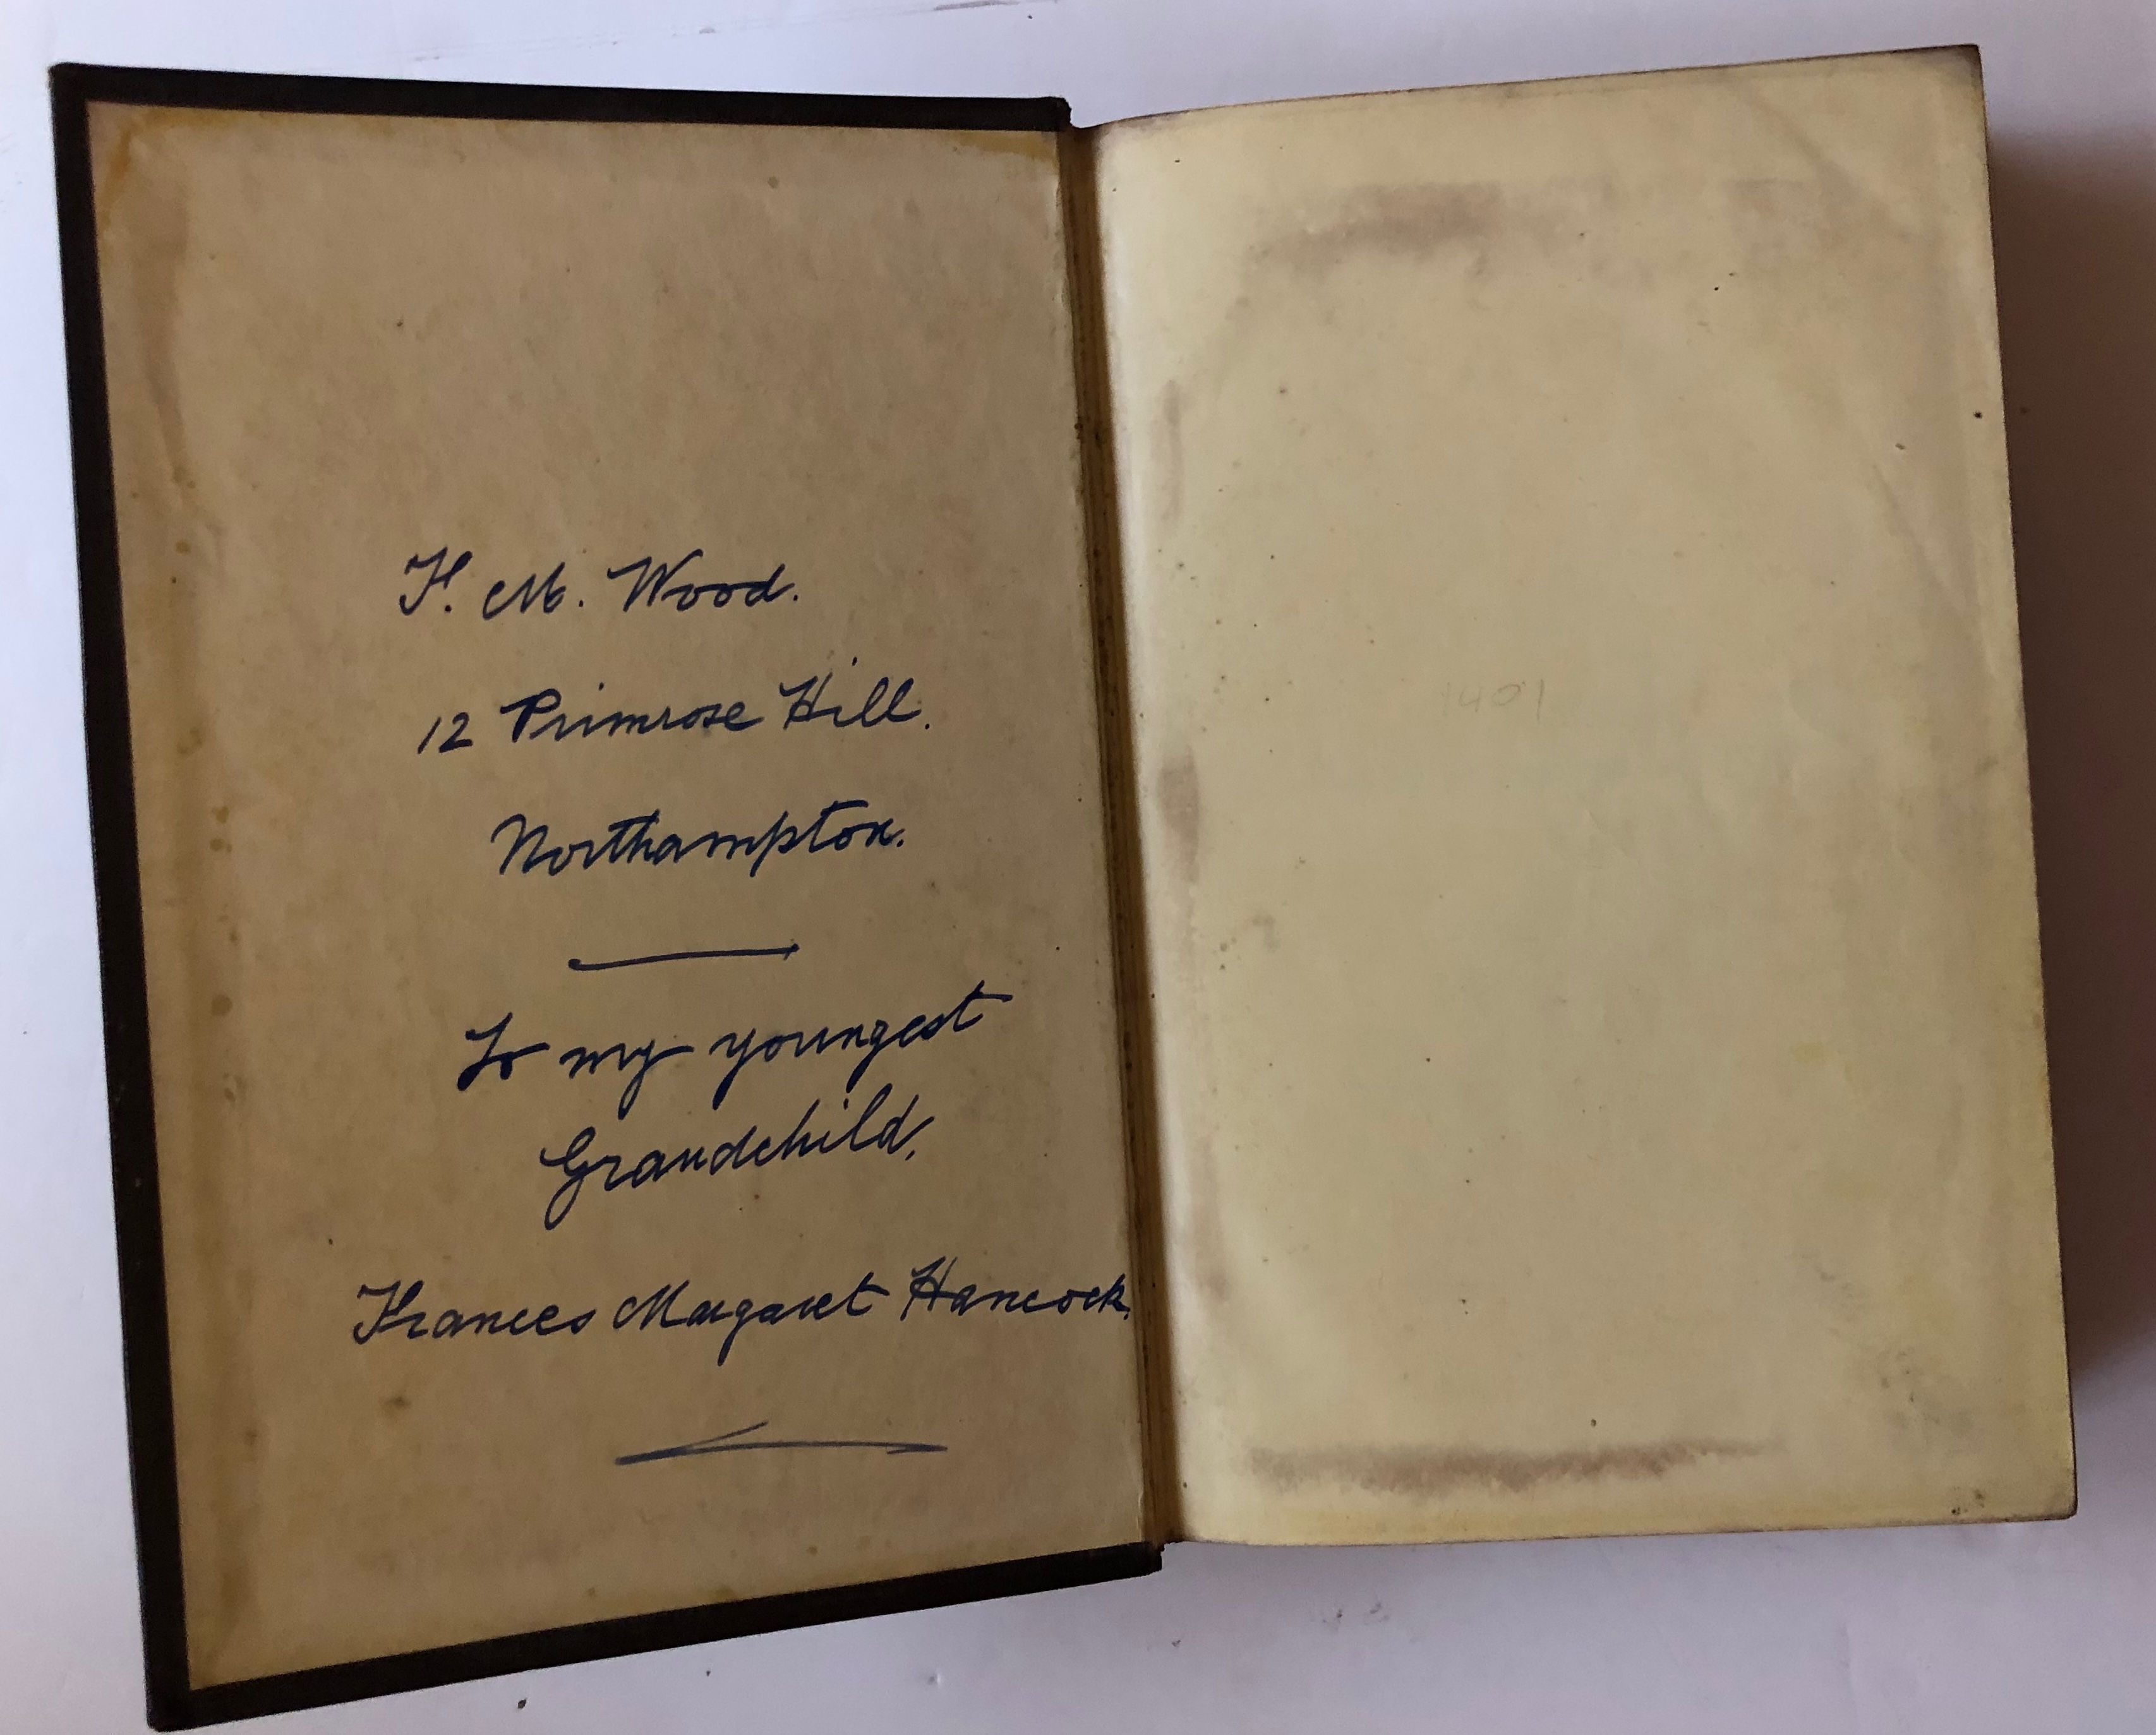 F. M. Wood.
12 Primrose Hill.
Northampton.
To my youngest
Grandchild,
Frances Margaret Hancock.
1401